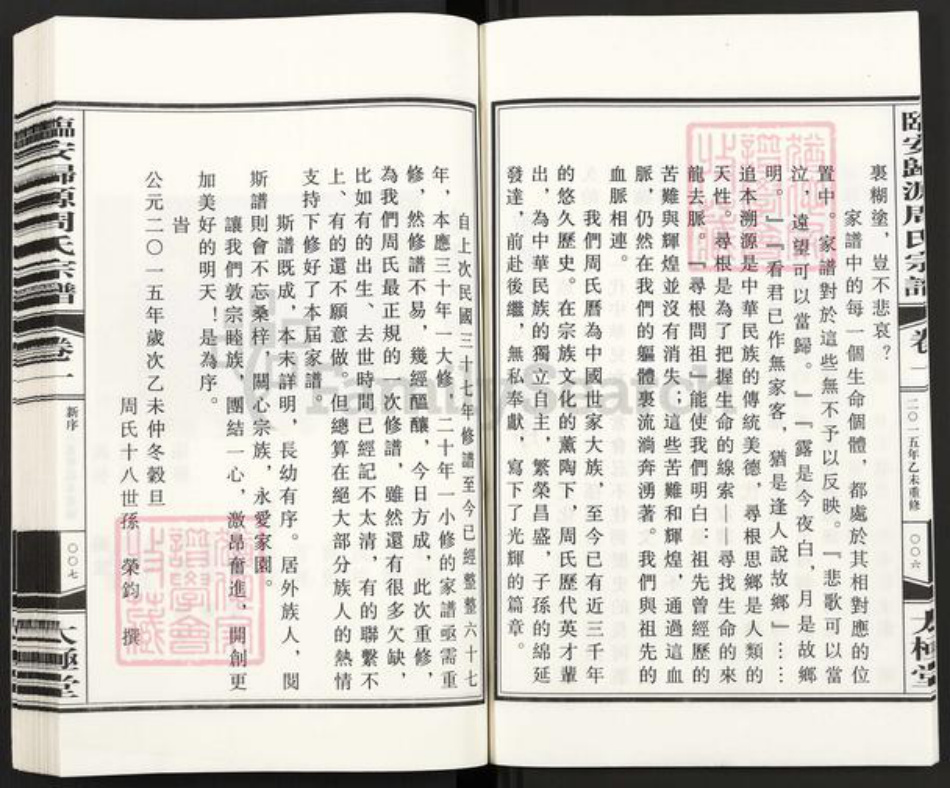 臨安歸源周氏宗譜
卷一
二〇一五年乙未重修
〇〇六
太極堂
裏糊塗，豈不悲哀？
家譜中的每一個生命個體，都處於其相對應的位
置中。家譜對於這些無不予以反映。『悲歌可以當
泣，遠望可以當歸。』『露是今夜白，月是故鄉
明。』『看君已作無家客，猶是逢人說故鄉』……
追本溯源是中華民族的傳統美德，尋根思鄉是人類的
天性。尋根是為了把握生命的線索——尋找生命的來
龍去脈。『尋根問祖』能使我們明白：祖先曾經歷的
苦難與輝煌並沒有消失；這些苦難和輝煌，通過這血
脈，仍然在我們的軀體裏流淌奔湧著。我們與祖先的
血脈相連。
我們周氏曆為中國世家大族，至今已有近三千年
的悠久歷史。在宗族文化的薰陶下，周氏歷代英才輩
出，為中華民族的獨立自主，繁榮昌盛，子孫的綿延
發達，前赴後繼，無私奉獻，寫下了光輝的篇章。
自上次民國三十七年修譜至今已經整整六十七
年，本應三十年一大修，二十年一小修的家譜亟需重
修，然修譜不易，幾經醞釀，今日方成，此次重修，
為我們周氏最正規的一次修譜，雖然還有很多欠缺，
比如有的出生、去世時間已經記不太清，有的聯繫不
上、有的還不願意做。但總算在絕大部分族人的熱情
支持下修好了本屆家譜。
斯譜既成，本末詳明，長幼有序。居外族人，閱
斯譜則會不忘桑梓，關心宗族，永愛家園。
讓我們敦宗睦族，團結一心，激昂奮進，開創更
加美好的明天！是為序。
旹
公元二〇一五年歲次乙未仲冬穀旦
周氏十八世孫　榮鈞　撰
臨安歸源周氏宗譜
卷一
新序
〇〇七
太極堂
FamilySearch